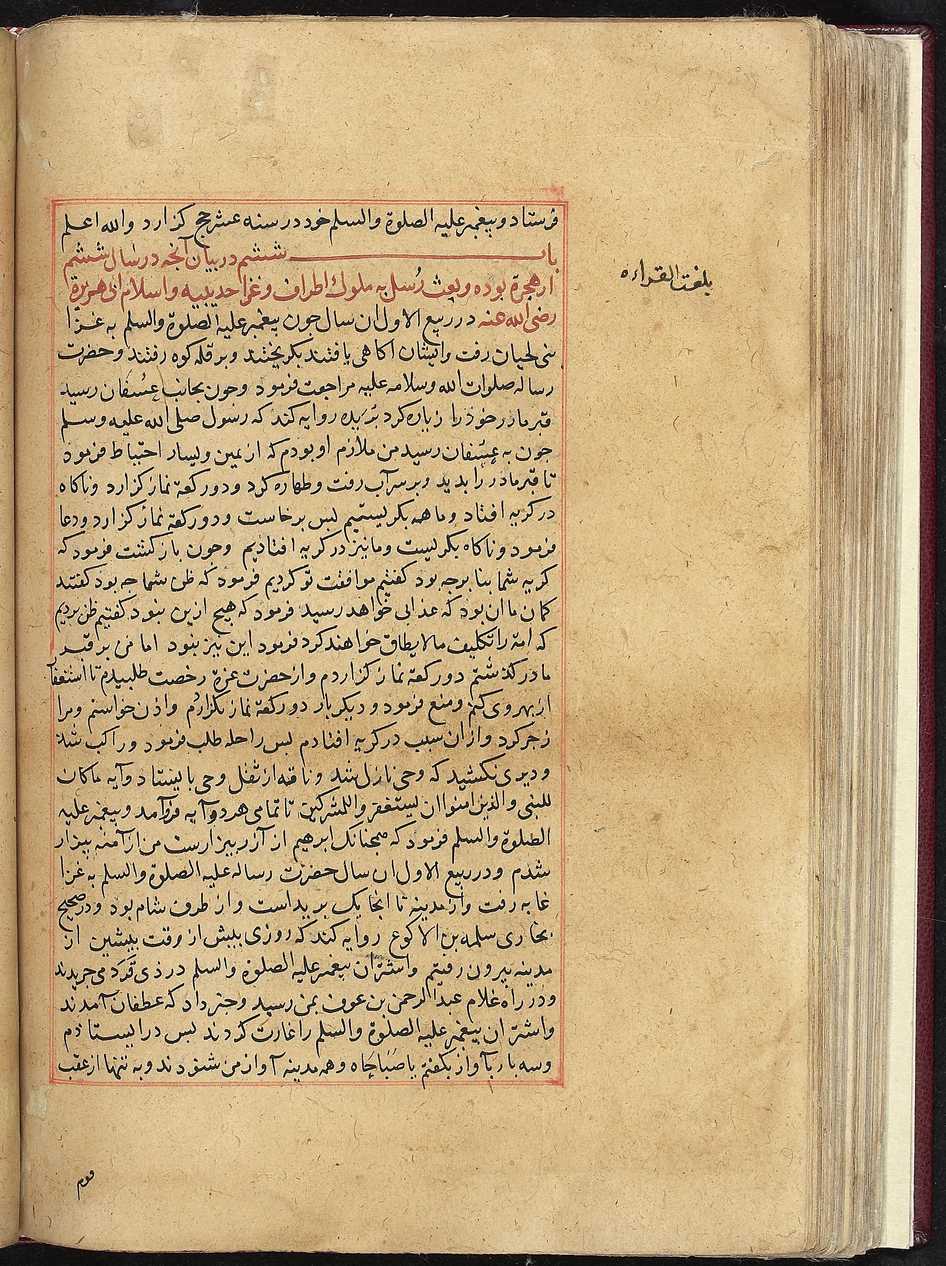 فرستاد و پیغمبر علیه الصلوة والسلم خود در سنه عشر حج کزارد والله اعلم
باب ششم در بیان آنجه در سال ششم
از هجرة بوده و بعث رُسل به ملوک اطراف و غزا حدیبیه و اسلام ابی هریرة
رضی الله عنه در ربیع الاول ان سال جون پیغمبر علیه الصلوة والسلم به غزا
بنی لحیان رفت و ایشان اکاهی یافتند بکریختند و بر قله کوه رفتند و حضرت
رساله صلوات الله وسلامه علیه مراجعت فرمود و جون بجانب عسفان رسید
قبر مادر خود را زیاره کرد بریده روایه کند که رسول صلی الله علیه وسلم
جون به عسفان رسید من ملازم او بودم که از یمین و یسار احتیاط فرمود
تا قبر مادر را بدید و بر سر آب رفت و طهاره کرد و دو رکعة نماز کزارد و ناکاه
در کریه افتاد و ما همه بکریستیم بس برخاست و دو رکعة نماز کزارد و دعا
فرمود و ناکاه بکریست و ما نیز در کریه افتادیم و جون باز کشت فرمود که
کریه شما بنا بر جه بود کفتیم موافقت تو کردیم فرمود که ظن شما جه بود کفتند
کمان ما ان بود که عذابی خواهد رسید فرمود که هیچ ازین نبود کفتیم ظن بردیم
که امة را تکلیف مالایطاق خواهند کرد فرمود این نیز نبود اما من بر قبر
مادر کذشتم دو رکعة نماز کزاردم و از حضرت عزة رخصت طلبیدم تا استغفار
از بهر وی کنم و منع فرمود و دیکر بار دو رکعة نماز بکزاردم و اذن خواستم و مرا
زجر کرد و از ان سبب در کریه افتادم بس راحله طلب فرمود و راکب شد
و دیری نکشید که وحی نازل شد و ناقه از ثقل وحی باستاد و آیه ماکان
للنبی والذین امنوا ان یستغفروا للمشرکین تا تمامی هر دو آیه فروآمد و پیغمبر علیه
الصلوة والسلم فرمود که همجنانک ابرهیم از آزر بیزارست من از آمنه بیزار
شدم و در ربیع الاول ان سال حضرت رساله علیه الصلوة والسلم به غزا
غابه رفت و از مدینه تا انجا یک برید است و از طرف شام بود و در صحیح
بخاری سلمه بن الاکوع روایه کند که روزی بیش از وقت بیشین از
مدینه بیرون رفتم و اشتران پیغمبر علیه الصلوة والسلم در ذی قرد می جریدند
و در راه غلام عبدالرحمن بن عوف بمن رسید و خبر داد که غطفان آمدند
و اشتران پیغمبر علیه الصلوة والسلم را غارت کردند بس در ایستادم
و سه بار بآواز بکفتم یا صباحاه و همه مدینه آواز من شنودند و به تنها از عقب
بلغت القراءه
قوم